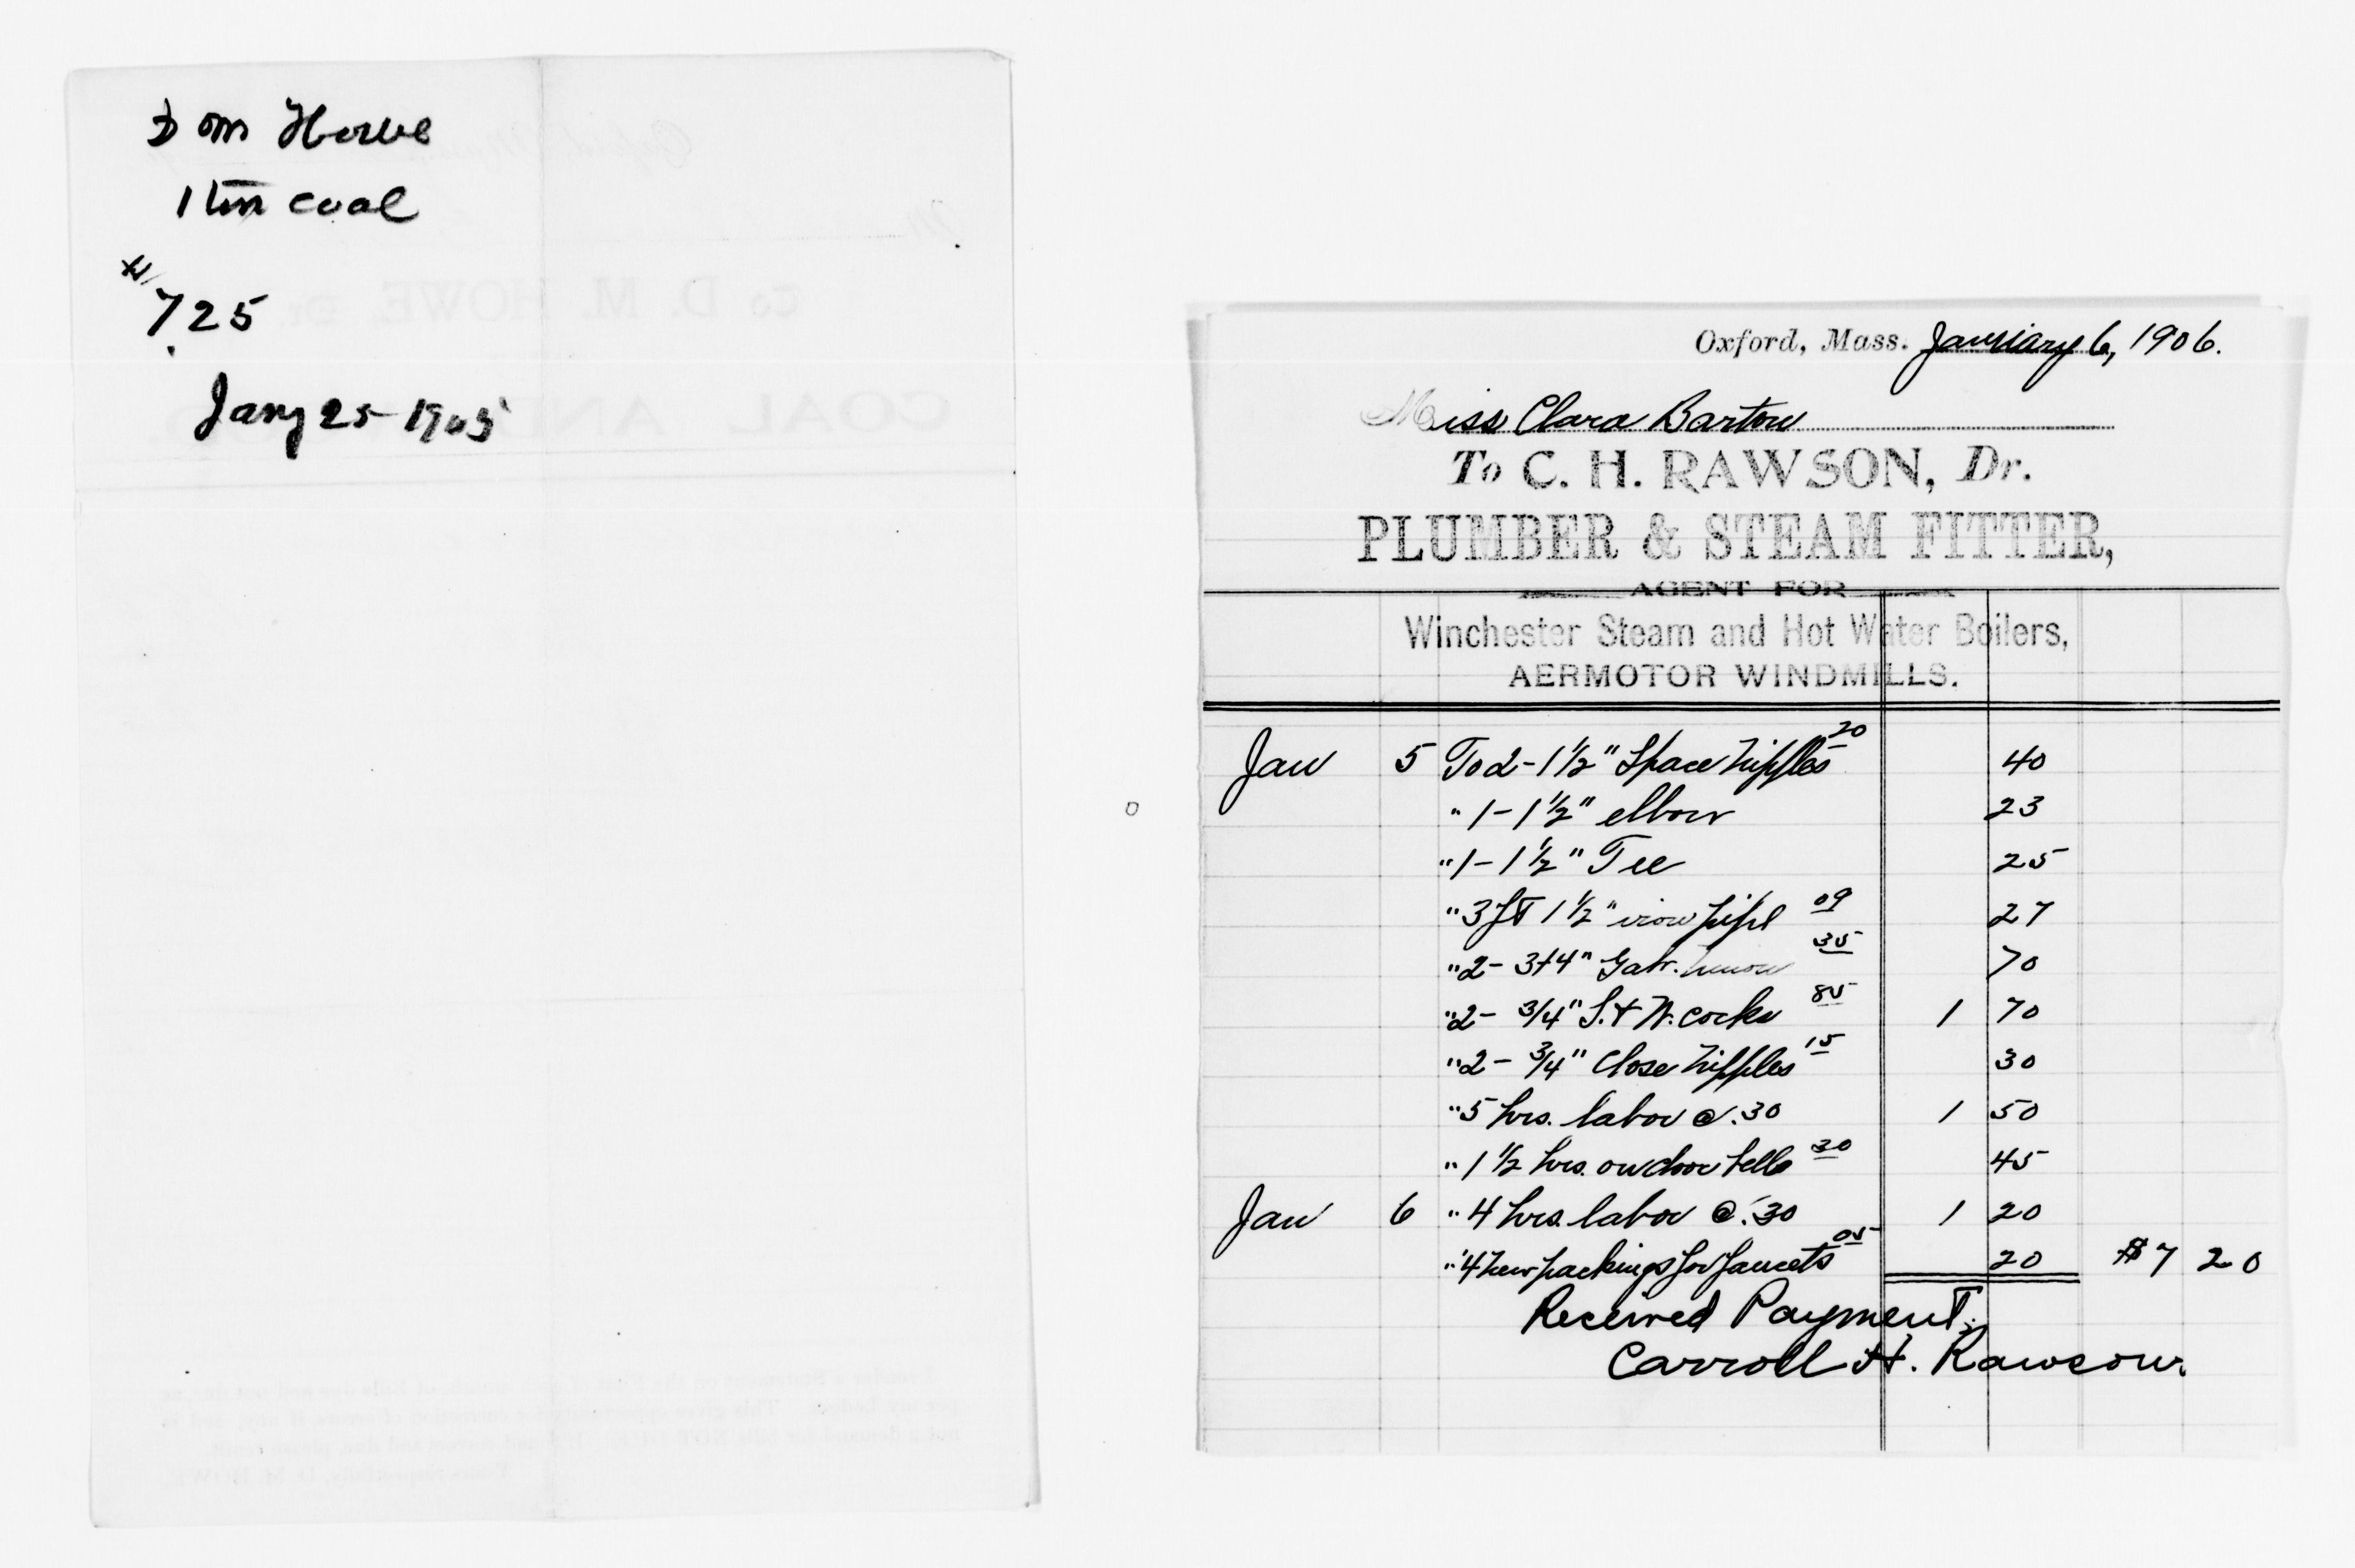 D M Howe
1 ton coal
$7.25
Jany 25-1905
Oxford, Mass. January 6, 1906.
Miss Clara Barton
To C. H. RAWSON, Dr.
PLUMBER & STEAM FITTER,
AGENT FOR
Winchester Steam and Hot Water Boilers,
AERMOTOR WINDMILLS.
Jan 5 To 2-1 1/2" Space nipples 20 40
" 1-1 1/2" elbow 23
" 1-1 1/2" Tee 25
" 3 ft 1 1/2" iron pipe 09 27
" 2- 3/4" Galv. union 35 70
" 2- 3/4" S. & W. cocks 85 1 70
" 2- 3/4" Close nipples 15 30
" 5 hrs. labor @ .30 1 50
" 1 1/2 hrs. on door bells 30 45
Jan 6 " 4 hrs. labor @ .30 1 20
" 4 new packings for faucets 05 20 $7 20
Received Payment,
Carroll H. Rawson.